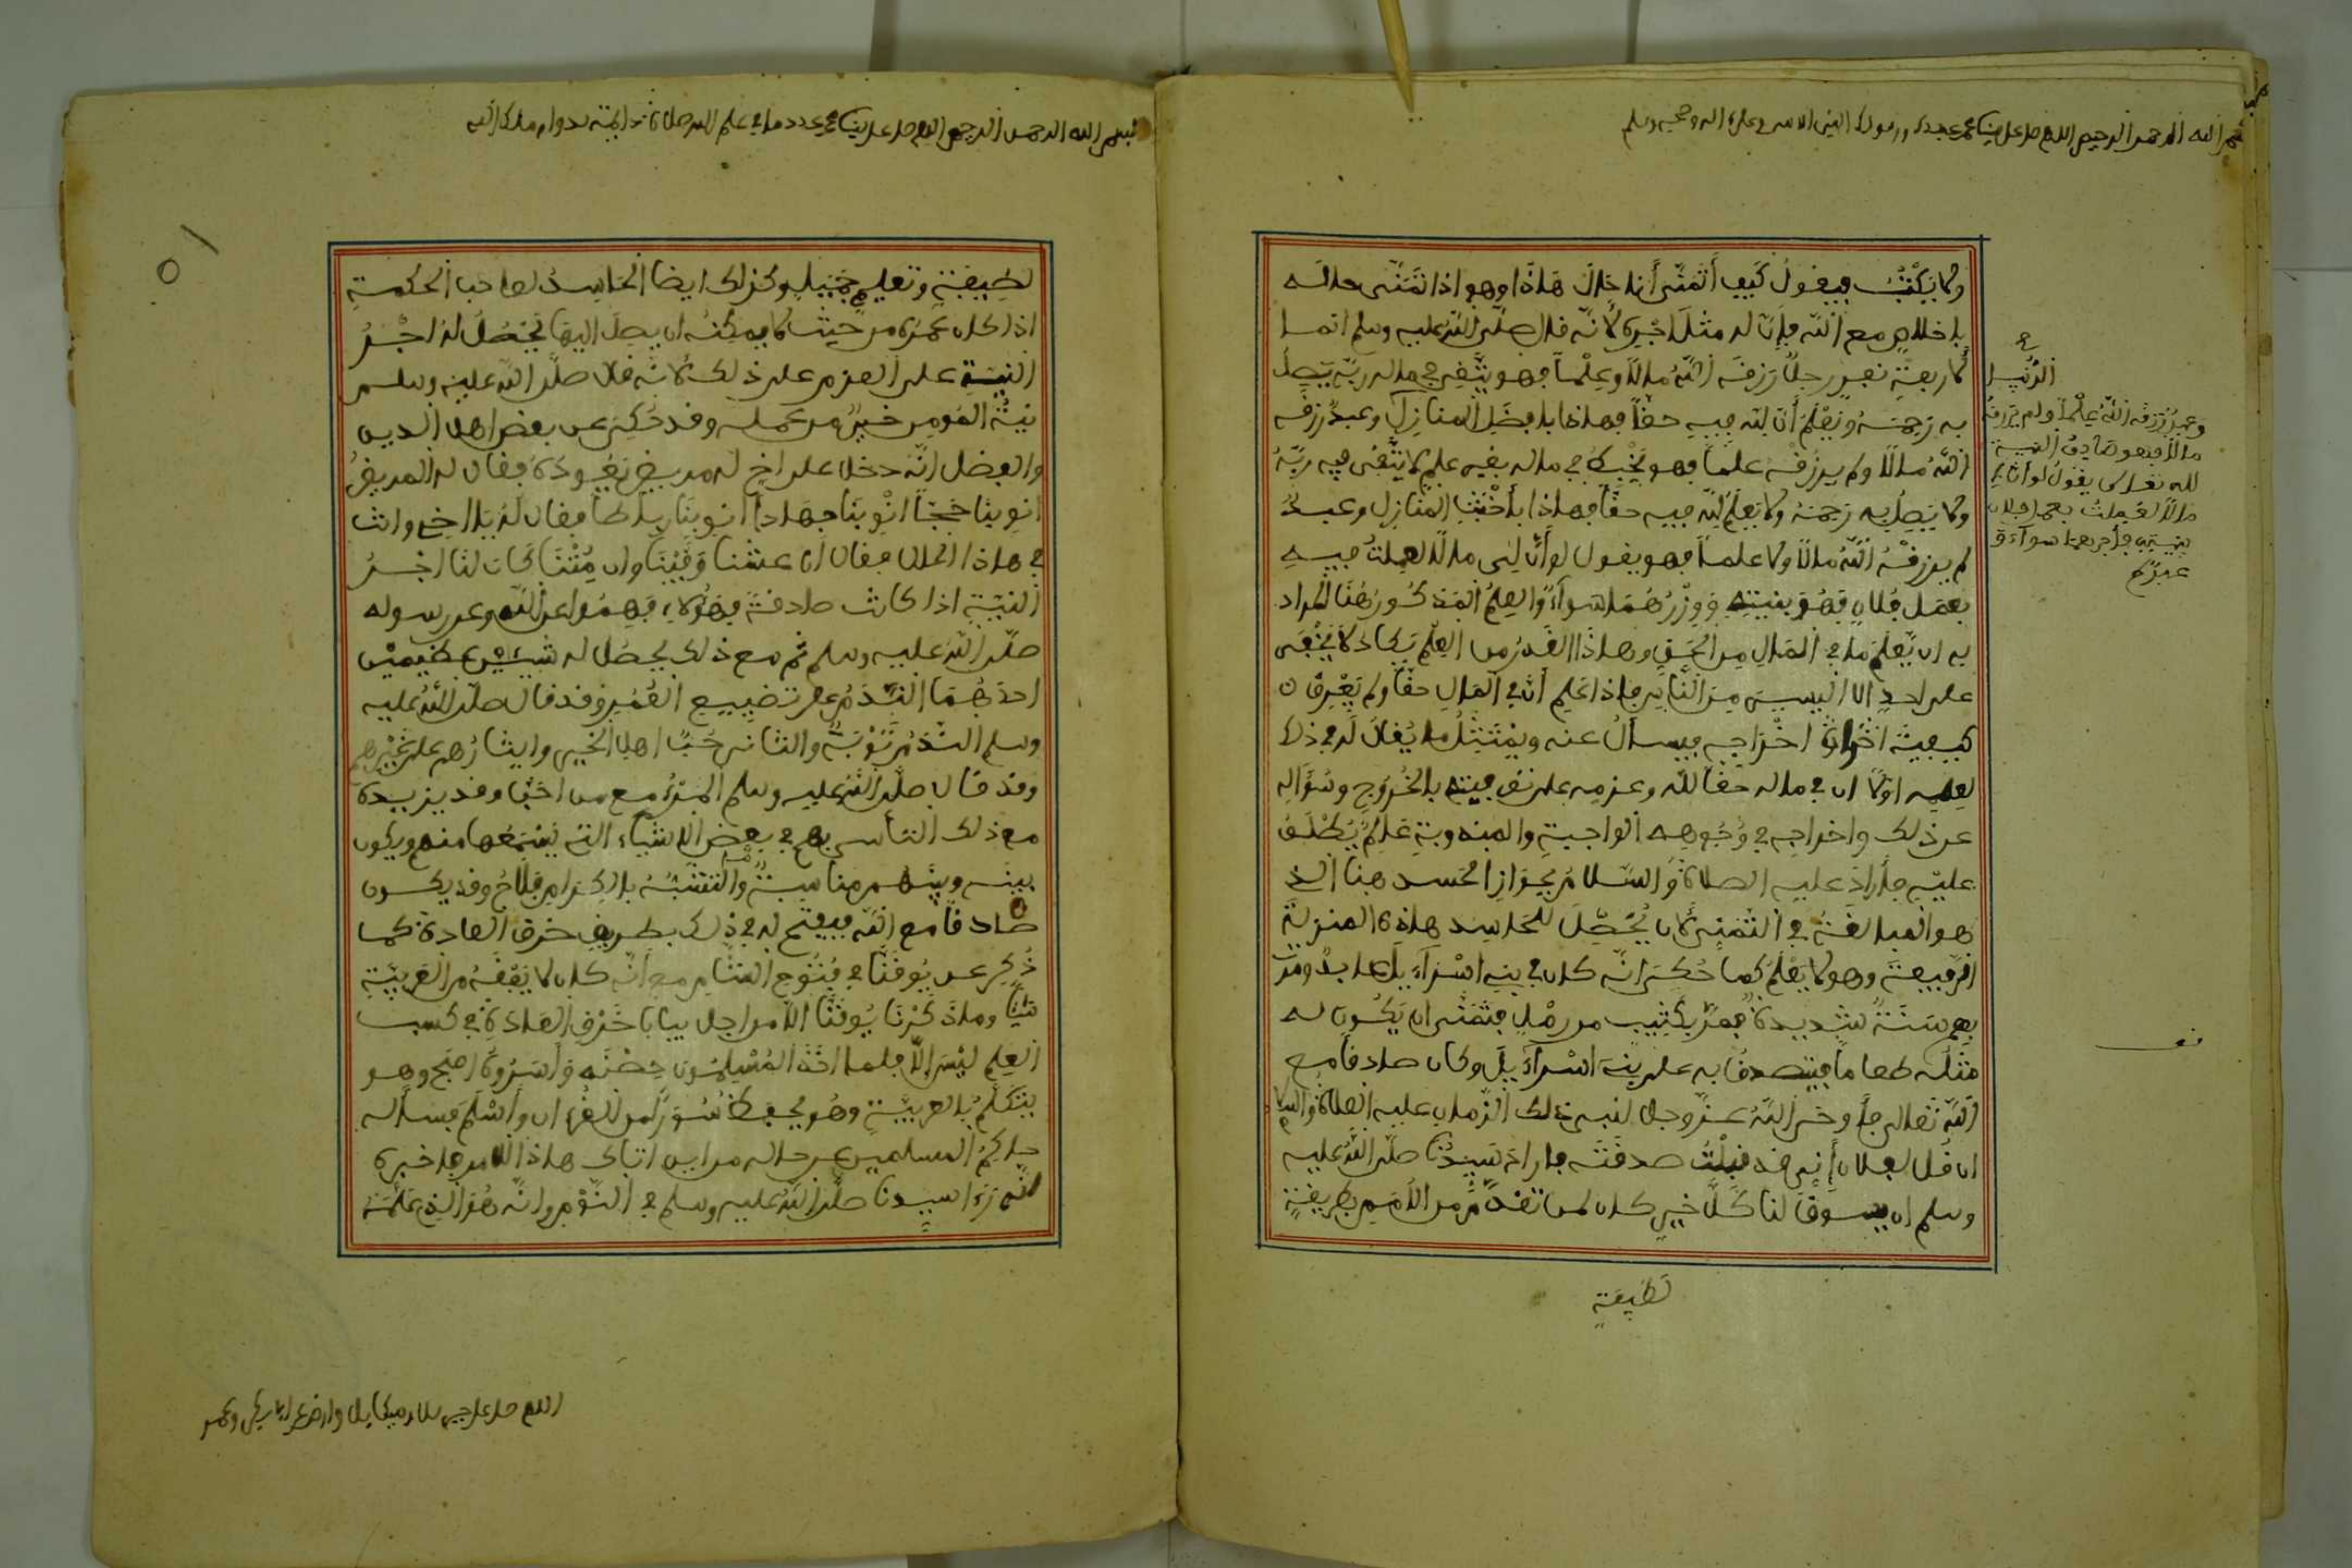 بسم الله الرحمن الرحيم اللهم صل على نبينا محمد عبدك ورسولك النبي الامي وعلى اله وصحبه وسلم
ولا يكتب فيقول كيف أتمنى أنا حال هذا وهو اذا تمنى حاله
باخلاص مع الله فإن له مثل أجره لأنه قال صلى الله عليه وسلم انما
لأربعة نفر رجل رزقه الله مالاً وعلماً فهو يتقي في ماله ربه يصل
به رحمه ويعلم أن لله فيه حقاً فهاذا بافضل المنازل وعبد رزقه
الله مالاً ولم يرزقه علماً فهو يخبط في ماله بغير علم لا يتقى فيه ربه
ولا يصل به رحمه ولا يعلم لله فيه حقاً فهاذا بأخبث المنازل وعبد
لم يرزقه الله مالاً ولا علماً فهو يقول لو أن لى مالاً لعملت فيه
بعمل فلان فهو بنيته ووزرهما سوآء والعلم المذكور هنا المراد
به ان يعلم ما في المال من الحق وهاذا القدر من العلم يكاد لا يخفى
على احد الا اليسير من الناس فاذا علم أن في المال حقاً ولم يعرف
كيفية اخراجه فيسأل عنه ويمتثل ما يقال له في ذلك
لعلمه اولاً ان في ماله حقاً لله وعزمه على توفيته بالخروج وسؤاله
عن ذلك واخراجه في وجوهه الواجبة والمندوبة علم يطلق
عليه فأراد عليه الصلاة والسلام بجواز الحسد هنا الذي
هو المبالغة في التمني لأن يحصل للحاسد هاذه المنزلة
الرفيعة وهو لا يعلم كما حكى انه كان في بني اسرآءيل عابد ومرت
بهم سنة شديدة فمر بكثيب من رمل فتمنى ان يكون له
مثله طعاماً فيتصدق به على بني اسرآءيل وكان صادقاً مع
الله تعالى فأوحى الله عز وجل لنبي ذلك الزمان عليه الصلاة والسلام
ان قل لفلان إني قد قبلت صدقته فاراد سيدنا صلى الله عليه
وسلم ان يسوق لنا كل خير كان لمن تقدم من الأمم بطريقة
لطيفة
وعبد رزقه الله علماً ولم يرزقه
مالاً فهو صادق النية
لله تعالى يقول لو أن لي
مالاً لعملت بعمل فلان
بنيته فأجرهما سوآء و
عبد لم
بسم الله الرحمن الرحيم اللهم صل على نبينا محمد عدد ما في علم الله صلاة دائمة بدوام ملك الله
لطيفة وتعليم جميل وكذلك ايضا الحاسد لصاحب الحكمة
اذا كان عمره من حيث لا يمكنه ان يصل اليها يحصل له اجر
النية على العزم على ذلك لانه قال صلى الله عليه وسلم
نية المومن خير من عمله وقد حكي عن بعض اهل الدين
والفضل انه دخل على اخ له مريض يعوده فقال له المريض
انو بنا حجاً انو بنا جهاداً انو بنا رباطاً فقال له يا اخي وانت
في هاذا الحال فقال ان عشنا وفينا وان متنا كان لنا اجر
النية اذا كانت صادقة فهؤلاء فهموا عن الله وعن رسوله
صلى الله عليه وسلم ثم مع ذلك يحصل له شيئين عظيمين
احدهما الندم على تضييع العمر وقد قال صلى الله عليه
وسلم الندم توبة والثاني حب اهل الخير وايثارهم على غيرهم
وقد قال صلى الله عليه وسلم المرء مع من احب وقد يزيده
مع ذلك التأسي بهم في بعض الاشياء التي يسمعها منهم ويكون
بينه وبينهم مناسبة والتشبه بالكرام فلاح وقد يكون
صادقاً مع الله فيفتح له في ذلك بطريق خرق العادة كما
ذكر عن يوقنا في فتوح الشام مع أنه كان لا يفقه من العربية
شيئاً وما ذكرنا يوقنا الا من اجل بيان خرق العادة في كسب
العلم ليس إلا فلما اخذ المسلمون حصنه وأسروه اصبح وهو
يتكلم بالعربية وهو يحفظ سوراً من القرءان وأسلم فسأله
حاكم المسلمين عن حاله من اين اتاك هاذا الامر فاخبره
انه رءا سيدنا صلى الله عليه وسلم في النوم وانه هو الذي علمه
اللهم صل على جبريل وميكايل وارض عن ابي بكر وعمر